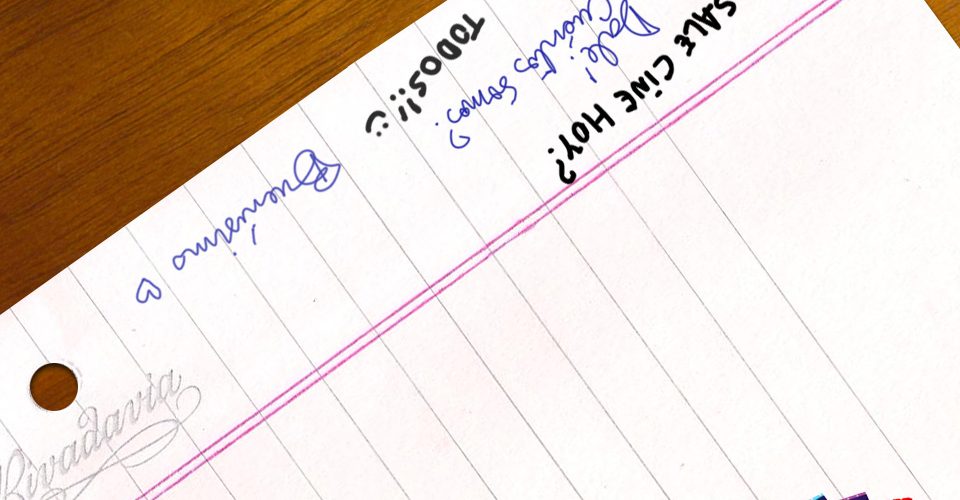 SALE CINE HOY?
Dale!
cuántos
somos?
TODOS!!! :)
Buenísimo ♡
Rivadavia